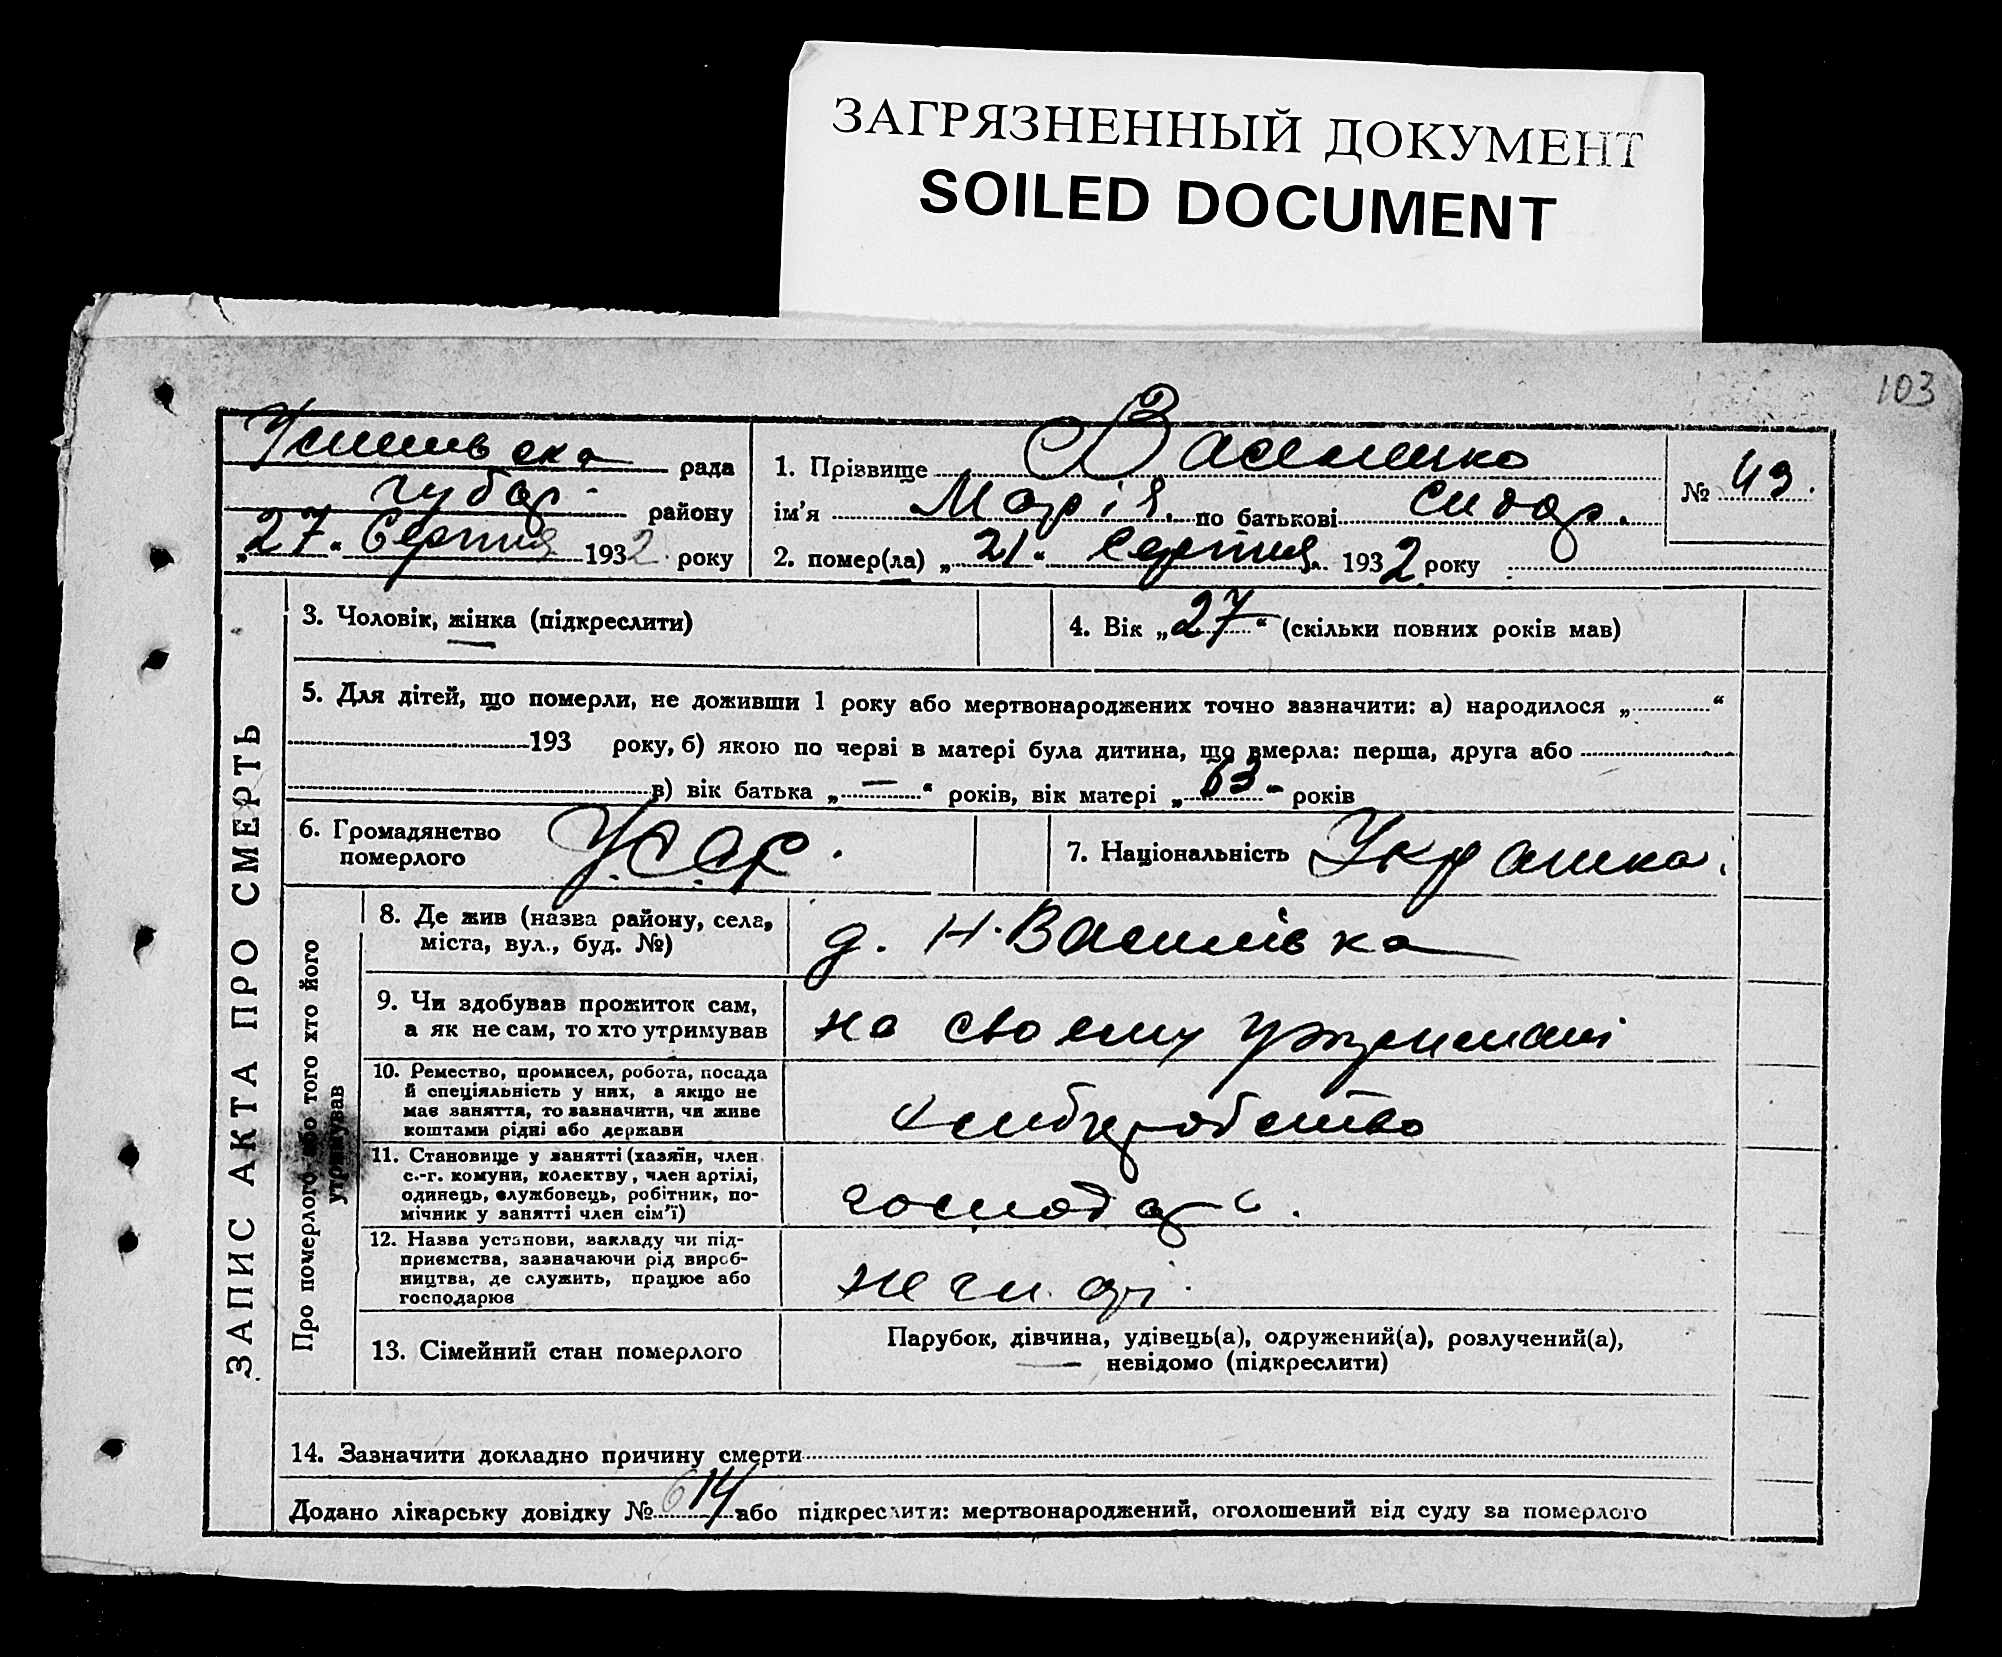 ЗАГРЯЗНЕННЫЙ ДОКУМЕНТ
SOILED DOCUMENT
103
рада
район у
„27“ Серпня 1932 року
1. Прізвище Василенко
ім’я Марія по батькові Сидор.
№ 43.
2. помер(ла) „21“ Серпня 1932 року
ЗАПИС АКТА ПРО СМЕРТЬ
3. Чоловік, жінка (підкреслити)
4. Вік „27“ (скільки повних років мав)
5. Для дітей, що померли, не доживши 1 року або мертвонароджених точно зазначити: а) народилося „ “
193 року, б) якою по черзі в матері була дитина, що вмерла: перша, друга або
в) вік батька „—“ років, вік матері „63“ років
6. Громадянство
померлого
УСРР.
7. Національність Українка.
Про померлого або того хто його
утримував
8. Де жив (назва району, села,
міста, вул., буд. №)
д. Н. Василівка
9. Чи здобував прожиток сам,
а як не сам, то хто утримував
на своему утриманні
10. Ремество, промисел, робота, посада
й спеціяльність у них, а якщо не
має заняття, то зазначити, чи живе
коштами рідні або держави
хліборобство
11. Становище у занятті (хазяїн, член
с.-г. комуни, колектву, член артілі,
одинець, службовець, робітник, по-
мічник у занятті член сім’ї)
господар
12. Назва установи, закладу чи під-
приємства, зазначаючи рід вироб-
ництва, де служить, працює або
господарює
13. Сімейний стан померлого
Парубок, дівчина, удівець(а), одружений(а), розлучений(а),
невідомо (підкреслити)
14. Зазначити докладно причину смерти
Додано лікарську довідку № 614 або підкреслити: мертвонароджений, оголошений від суду за померлого